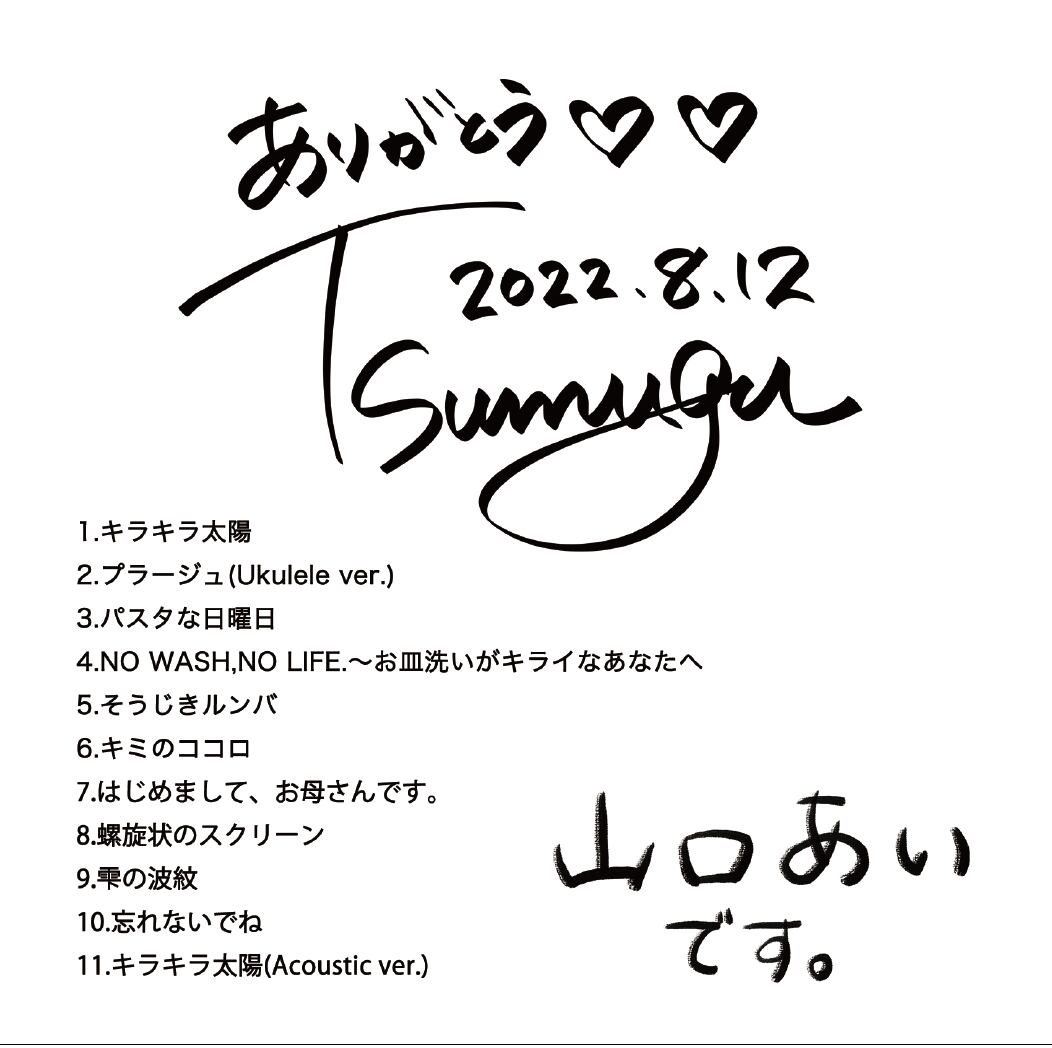 ありがとう♡♡
2022.8.12
Tsumugu
1.キラキラ太陽
2.プラージュ(Ukulele ver.)
3.パスタな日曜日
4.NO WASH,NO LIFE.〜お皿洗いがキライなあなたへ
5.そうじきルンバ
6.キミのココロ
7.はじめまして、お母さんです。
8.螺旋状のスクリーン
9.雫の波紋
10.忘れないでね
11.キラキラ太陽(Acoustic ver.)
山口あい
です。